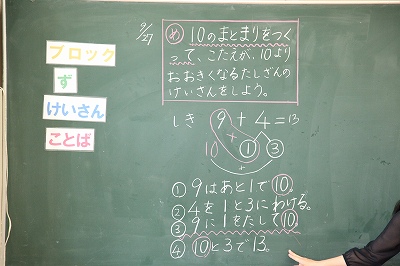 9/27
ブロック
ず
けいさん
ことば
め 10のまとまりをつく
って、こたえが、10より
おおきくなるたしざんの
けいさんをしよう。
しき 9 + 4 = 13
10 + ① ③
+
① 9はあと1で10。
② 4を1と3にわける。
③ 9に1をたして10。
④ 10と3で13。